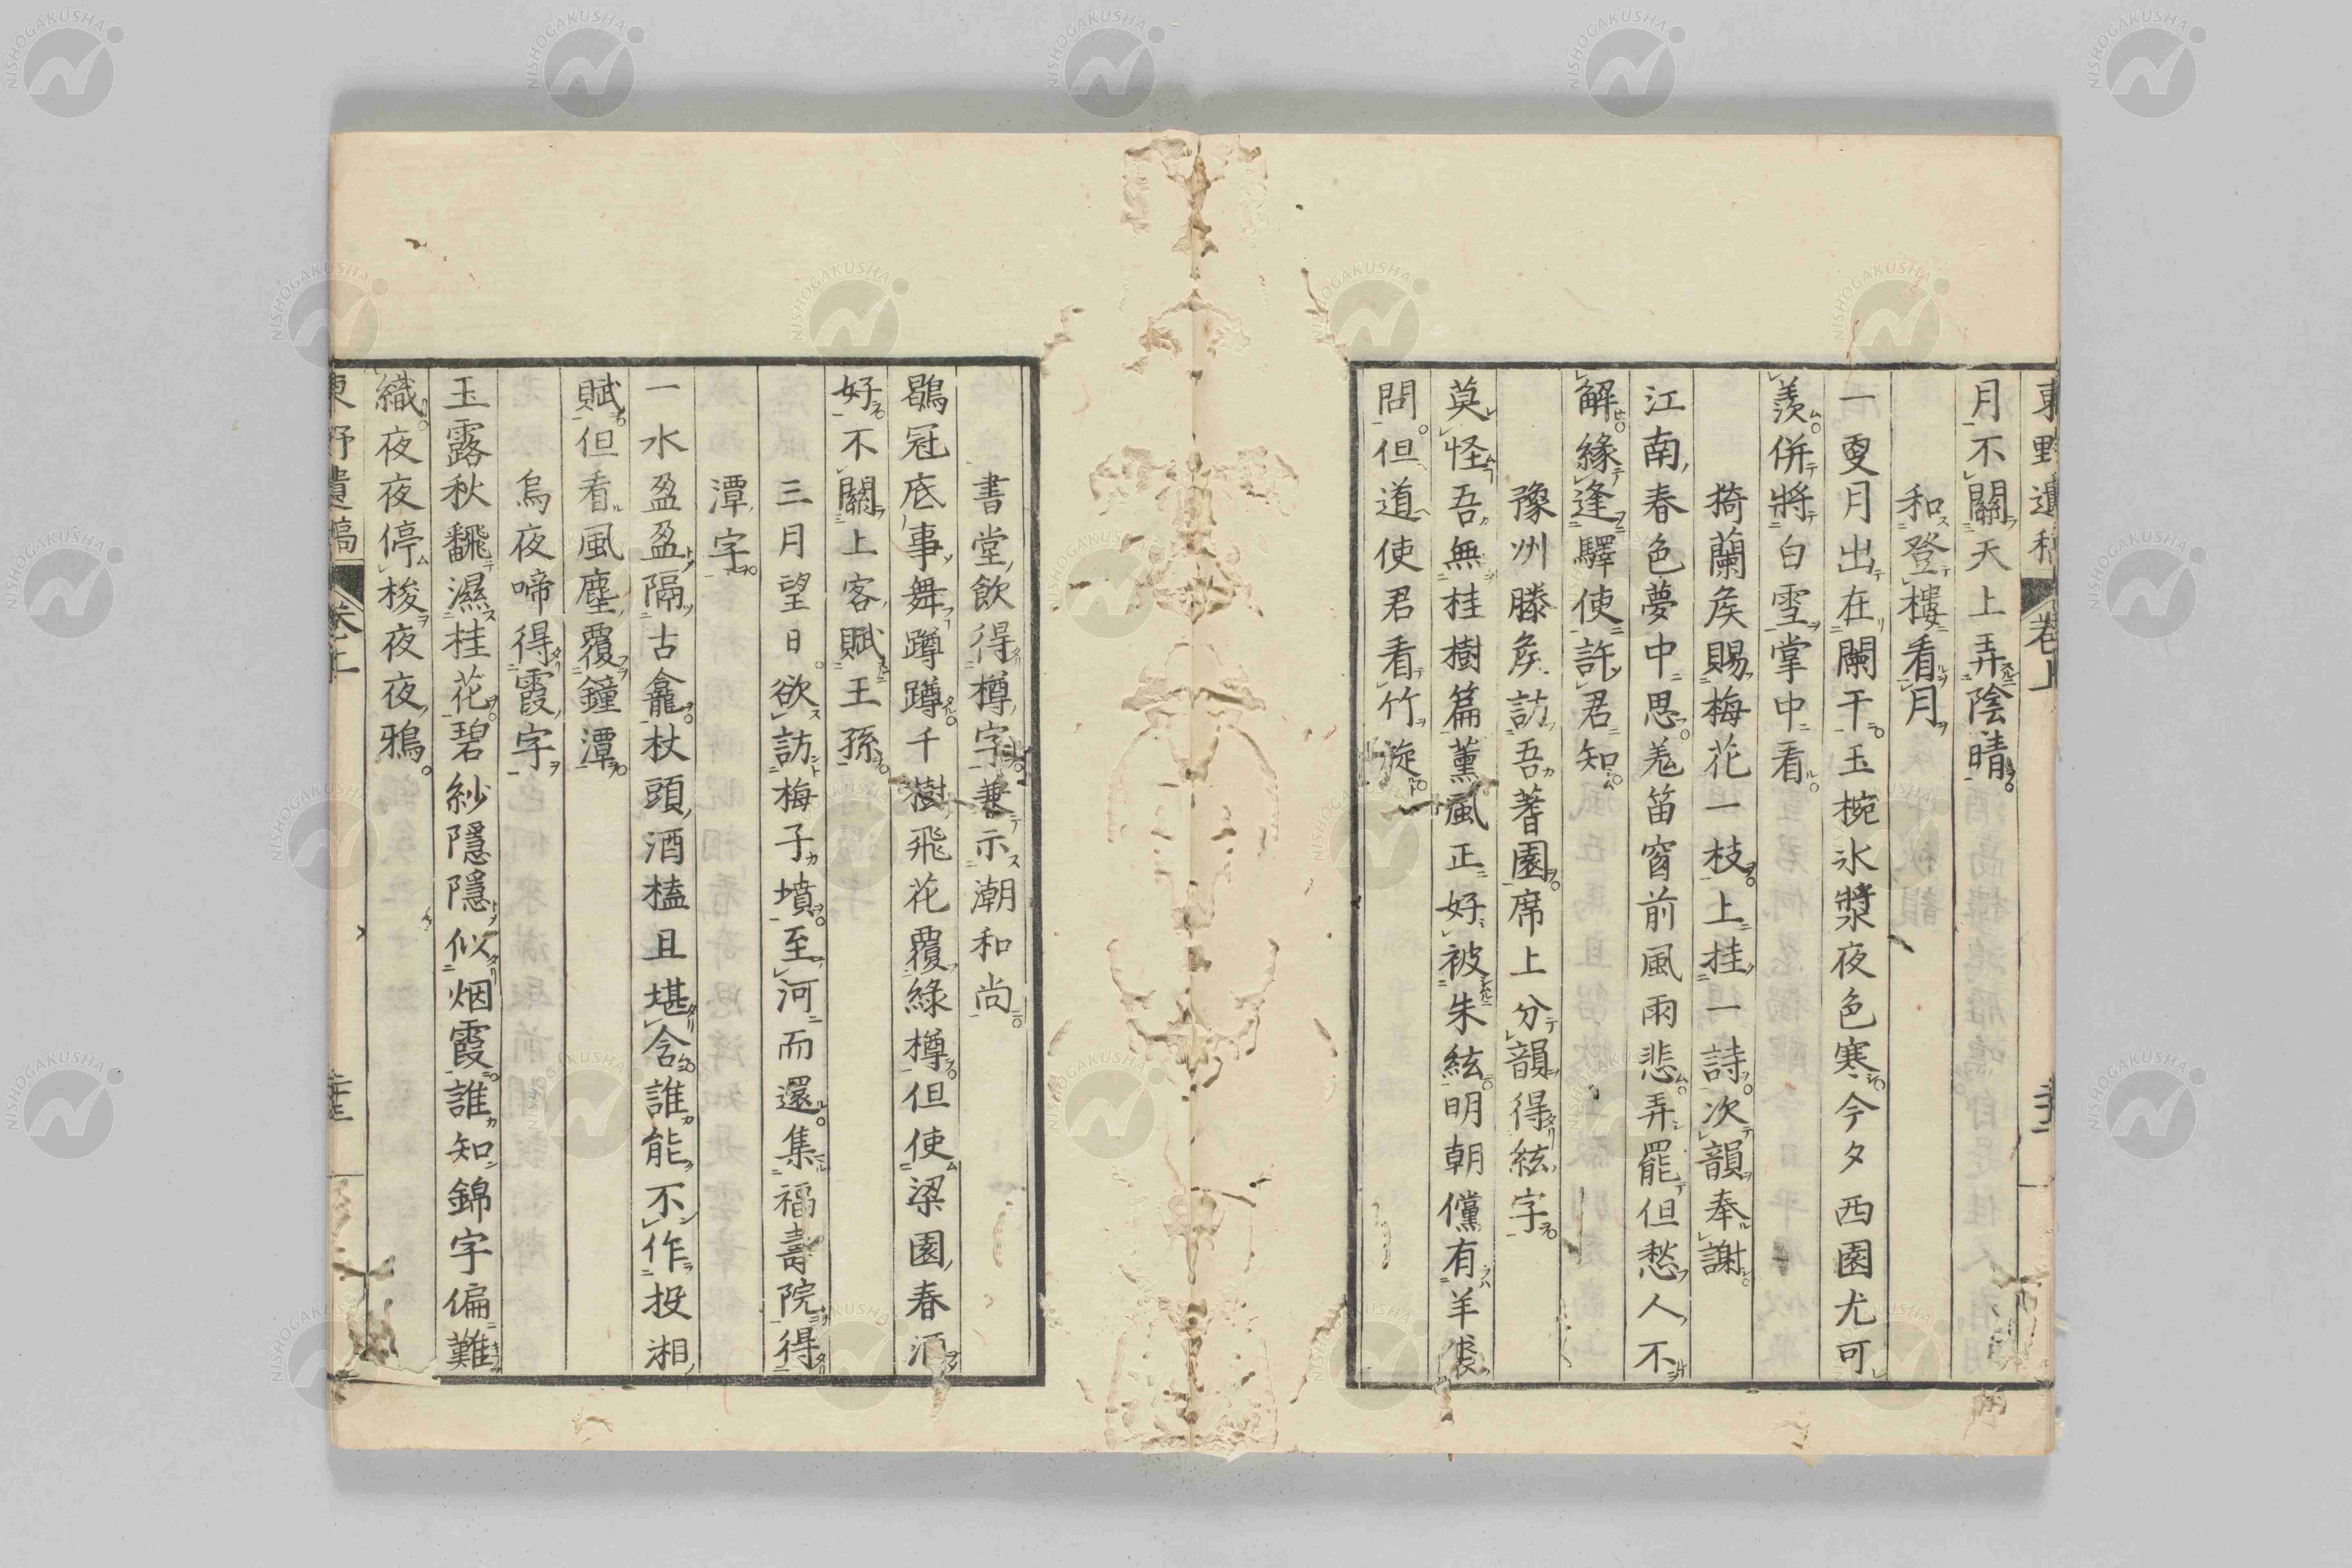 東野遺稿 卷上
月不關天上弄陰晴
和登樓看月
一更月出在闌干玉椀氷漿夜色寒今夕西園尤可
羨併將白雪掌中看
猗蘭矦賜梅花一枝上挂一詩次韻奉謝
江南春色夢中思羗笛窗前風雨悲弄罷但愁人不
解緣逢驛使許君知
豫州滕矦訪吾蓍園席上分韻得絃字
莫怪吾無桂樹篇薰風正好被朱絃明朝儻有羊裘
問但道使君看竹旋
書堂飲得樽字兼示潮和尚
鶡冠底事舞蹲蹲千樹飛花覆綠樽但使梁園春酒
好不關上客賦王孫
三月望日欲訪梅子墳至河而還集福壽院得
潭字
一水盈盈隔古龕杖頭酒榼且堪含誰能不作投湘
賦但看風塵覆鐘潭
烏夜啼得霞字
玉露秋飜濕桂花碧紗隱隱似烟霞誰知錦字偏難
織夜夜停梭夜夜鴉
東野遺稿 卷上
NISHOGAKUSHA